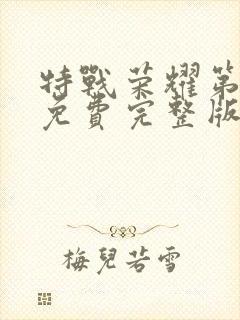 特戰荣耀第
免費完整版
梅兒若雪